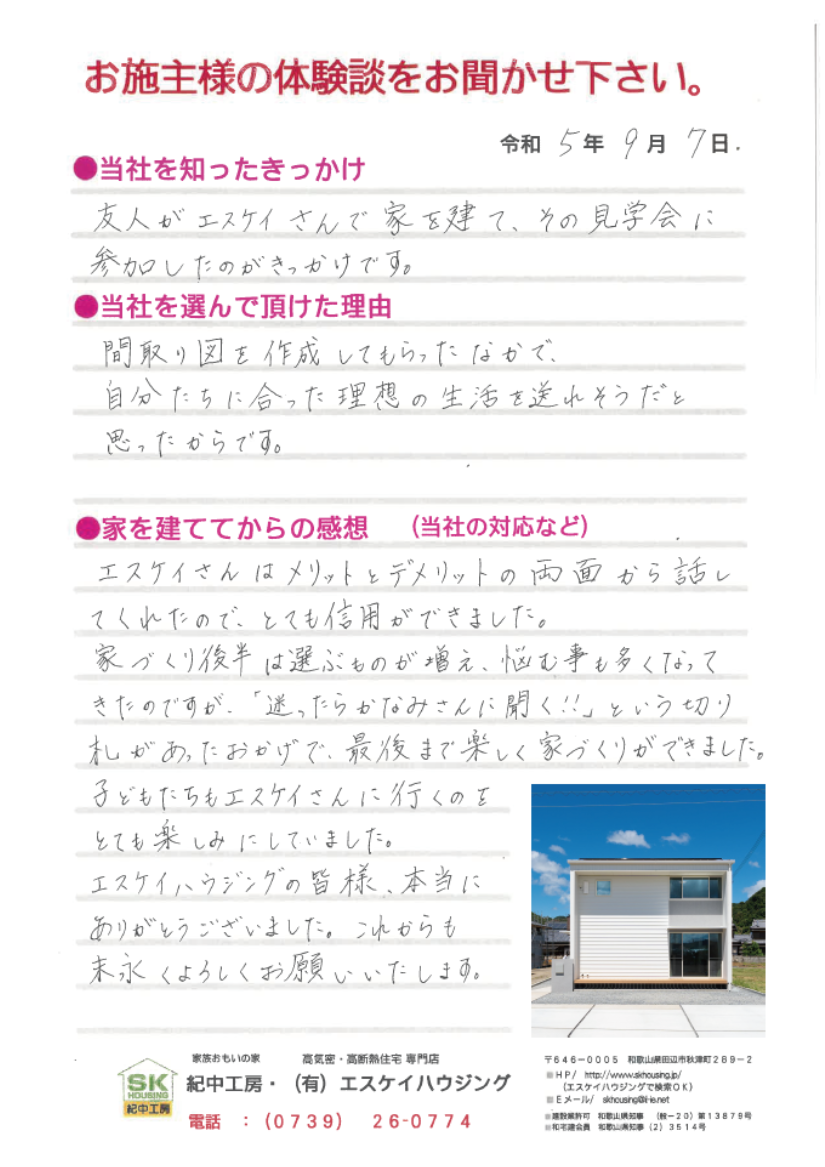 お施主様の体験談をお聞かせ下さい。
令和 5年 9月 7日.
●当社を知ったきっかけ
友人がエスケイさんで家を建て、その見学会に
参加したのがきっかけです。
●当社を選んで頂けた理由
間取り図を作成してもらったなかで、
自分たちに合った理想の生活を送れそうだと
思ったからです。
●家を建ててからの感想 （当社の対応など）
エスケイさんはメリットとデメリットの両面から話し
てくれたので、とても信用ができました。
家づくり後半は選ぶものが増え、悩む事も多くなって
きたのですが、「迷ったらかなみさんに聞く!!」という切り
札があったおかげで、最後まで楽しく家づくりができました。
子どもたちもエスケイさんに行くのを
とても楽しみにしていました。
エスケイハウジングの皆様、本当に
ありがとうございました。これからも
末永くよろしくお願いいたします。
SK
HOUSING
紀中工房
家族おもいの家 高気密・高断熱住宅 専門店
紀中工房・（有）エスケイハウジング
電話 ：（0739） 26-0774
〒646－0005 和歌山県田辺市秋津町289－2
■HP/ http://www.skhousing.jp/
（エスケイハウジングで検索OK）
■Eメール/ skhousing@i-ie.net
■建設業許可 和歌山県知事 （般－20）第13879号
■和宅建会員 和歌山県知事（2）3514号